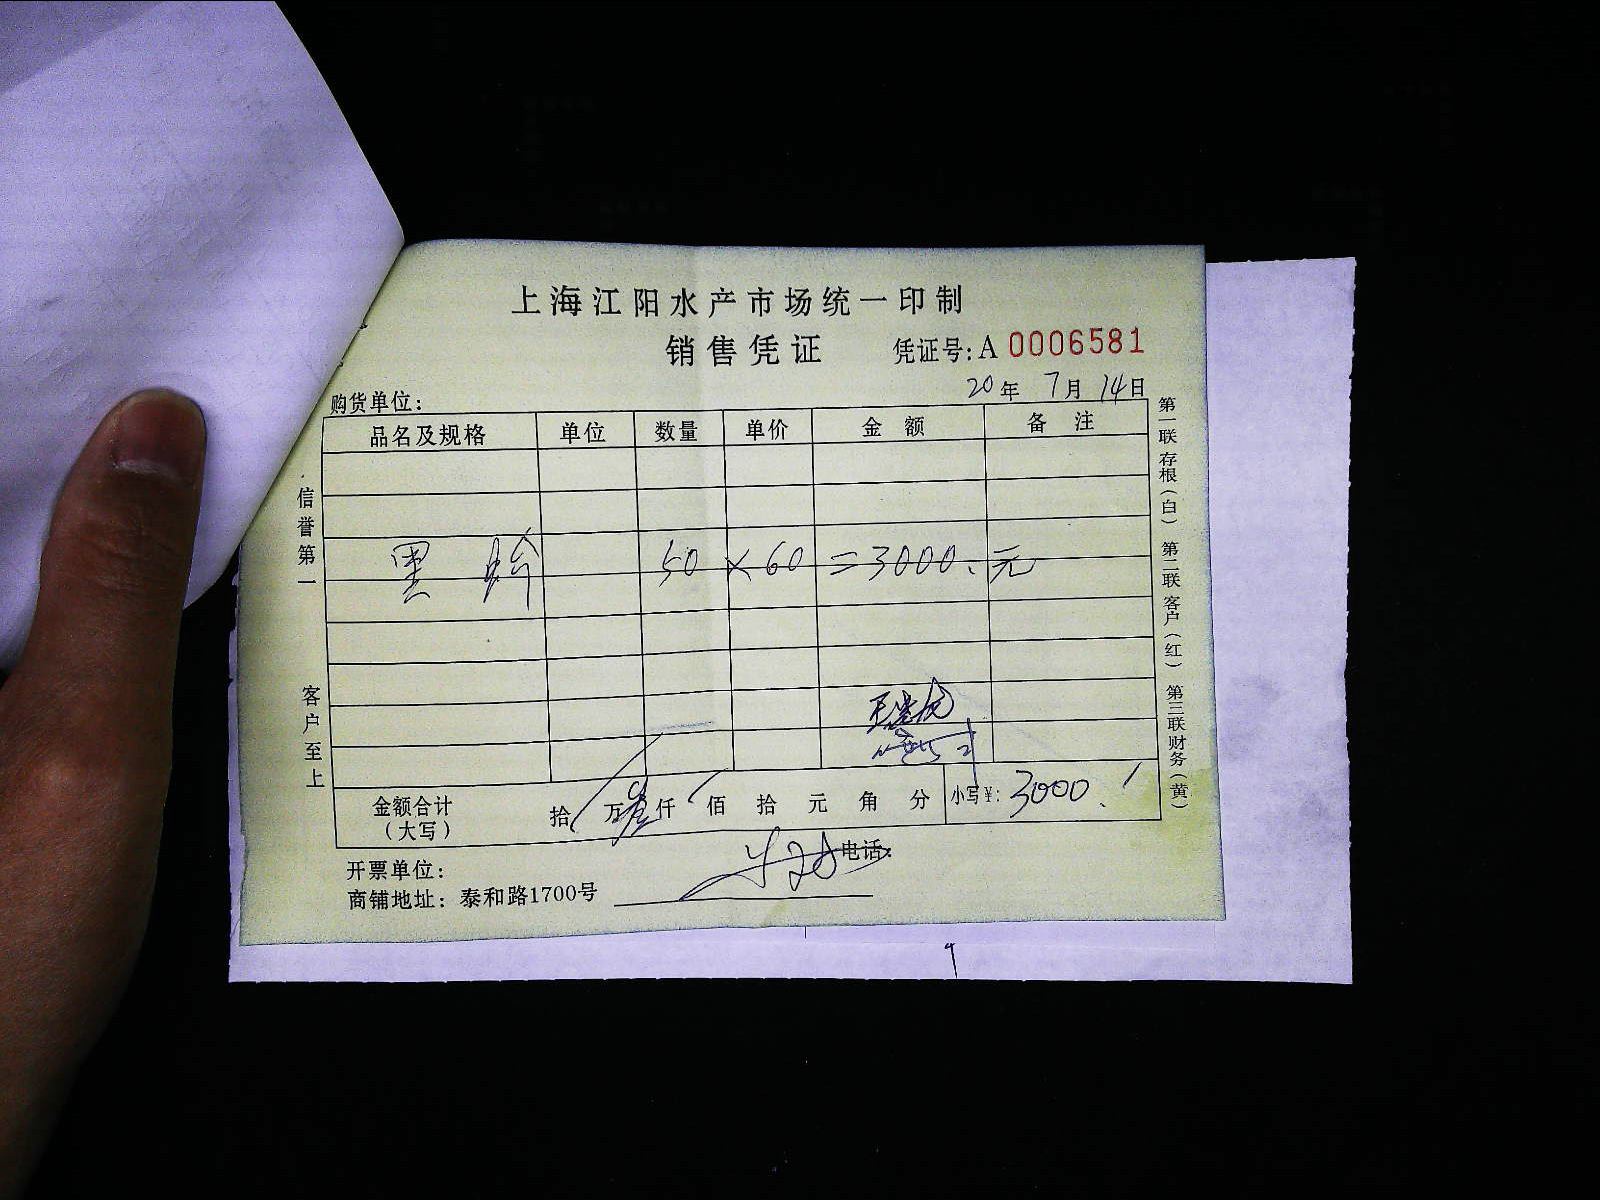 上海江阳水产市场统一印制
销售凭证 凭证号:A 0006581
20年 7月 14日
购货单位:
品名及规格 单位 数量 单价 金额 备注
黑 50 × 60 = 3000.元
金额合计(大写) 拾 万 仟 佰 拾 元 角 分 小写¥: 3000.
开票单位: 电话:
商铺地址: 泰和路1700号
信誉第一 客户至上
第一联存根(白) 第二联客户(红) 第三联财务(黄)